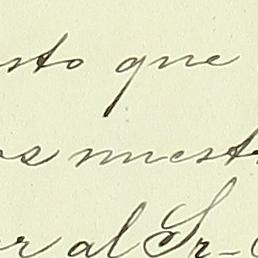 sto que
os nuest
er al Sr-